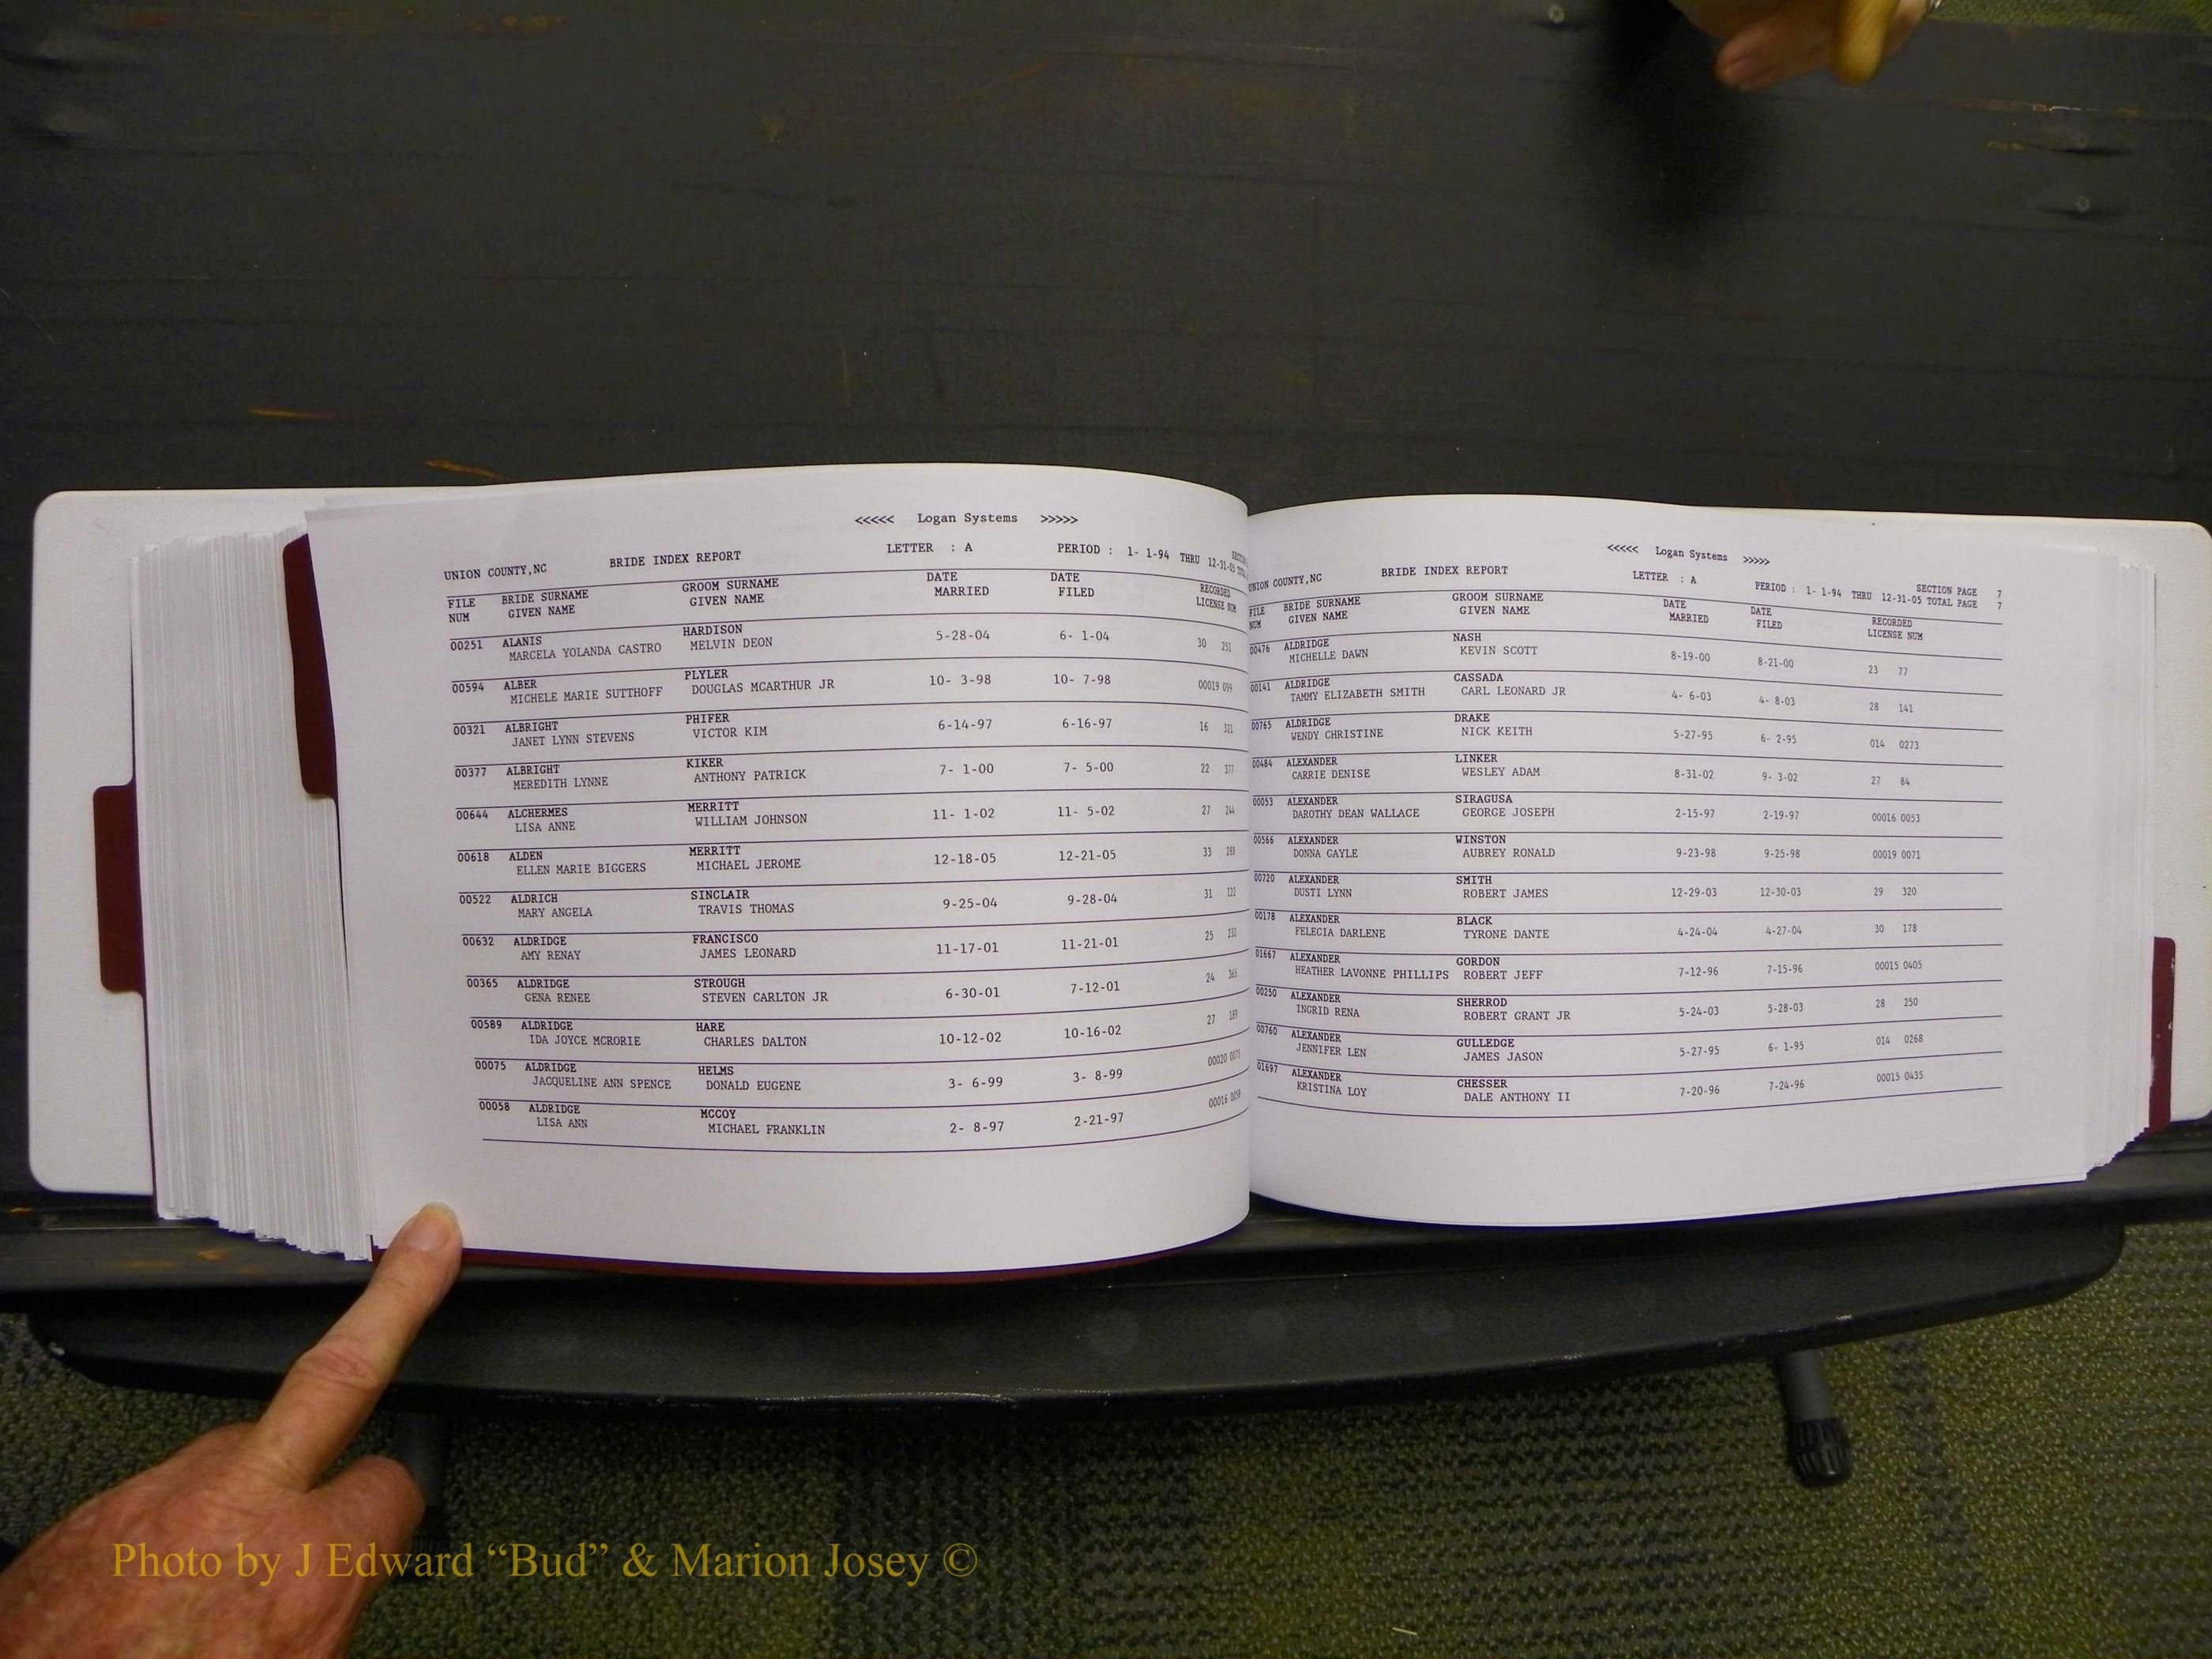 <<<<< Logan Systems >>>>>
UNION COUNTY,NC BRIDE INDEX REPORT LETTER : A PERIOD : 1- 1-94 THRU 12-31-05
FILE BRIDE SURNAME GROOM SURNAME DATE DATE RECORDED
NUM GIVEN NAME GIVEN NAME MARRIED FILED LICENSE NUM
00251 ALANIS HARDISON 5-28-04 6- 1-04 30 251
MARCELA YOLANDA CASTRO MELVIN DEON
00594 ALBER PLYLER 10- 3-98 10- 7-98 00019
MICHELE MARIE SUTTHOFF DOUGLAS MCARTHUR JR
00321 ALBRIGHT PHIFER 6-14-97 6-16-97 16 321
JANET LYNN STEVENS VICTOR KIM
00377 ALBRIGHT KIKER 7- 1-00 7- 5-00 22 377
MEREDITH LYNNE ANTHONY PATRICK
00644 ALCHERMES MERRITT 11- 1-02 11- 5-02 27 244
LISA ANNE WILLIAM JOHNSON
00618 ALDEN MERRITT 12-18-05 12-21-05 33
ELLEN MARIE BIGGERS MICHAEL JEROME
00522 ALDRICH SINCLAIR 9-25-04 9-28-04 31 122
MARY ANGELA TRAVIS THOMAS
00632 ALDRIDGE FRANCISCO 11-17-01 11-21-01 25
AMY RENAY JAMES LEONARD
00365 ALDRIDGE STROUGH 6-30-01 7-12-01 24 365
GENA RENEE STEVEN CARLTON JR
00589 ALDRIDGE HARE 10-12-02 10-16-02 27 189
IDA JOYCE MCRORIE CHARLES DALTON
00075 ALDRIDGE HELMS 3- 6-99 3- 8-99 00020 0075
JACQUELINE ANN SPENCE DONALD EUGENE
00058 ALDRIDGE MCCOY 2- 8-97 2-21-97 00016 0058
LISA ANN MICHAEL FRANKLIN
<<<<< Logan Systems >>>>>
UNION COUNTY,NC BRIDE INDEX REPORT LETTER : A PERIOD : 1- 1-94 THRU 12-31-05 SECTION PAGE 7
TOTAL PAGE 7
FILE BRIDE SURNAME GROOM SURNAME DATE DATE RECORDED
NUM GIVEN NAME GIVEN NAME MARRIED FILED LICENSE NUM
00476 ALDRIDGE NASH 8-19-00 8-21-00 23 77
MICHELLE DAWN KEVIN SCOTT
00141 ALDRIDGE CASSADA 4- 6-03 4- 8-03 28 141
TAMMY ELIZABETH SMITH CARL LEONARD JR
00765 ALDRIDGE DRAKE 5-27-95 6- 2-95 014 0273
WENDY CHRISTINE NICK KEITH
00484 ALEXANDER LINKER 8-31-02 9- 3-02 27 84
CARRIE DENISE WESLEY ADAM
00053 ALEXANDER SIRAGUSA 2-15-97 2-19-97 00016 0053
DAROTHY DEAN WALLACE GEORGE JOSEPH
00566 ALEXANDER WINSTON 9-23-98 9-25-98 00019 0071
DONNA GAYLE AUBREY RONALD
00720 ALEXANDER SMITH 12-29-03 12-30-03 29 320
DUSTI LYNN ROBERT JAMES
00178 ALEXANDER BLACK 4-24-04 4-27-04 30 178
FELECIA DARLENE TYRONE DANTE
01667 ALEXANDER GORDON 7-12-96 7-15-96 00015 0405
HEATHER LAVONNE PHILLIPS ROBERT JEFF
00250 ALEXANDER SHERROD 5-24-03 5-28-03 28 250
INGRID RENA ROBERT GRANT JR
00760 ALEXANDER GULLEDGE 5-27-95 6- 1-95 014 0268
JENNIFER LEN JAMES JASON
01697 ALEXANDER CHESSER 7-20-96 7-24-96 00015 0435
KRISTINA LOY DALE ANTHONY II
Photo by J Edward “Bud” & Marion Josey ©